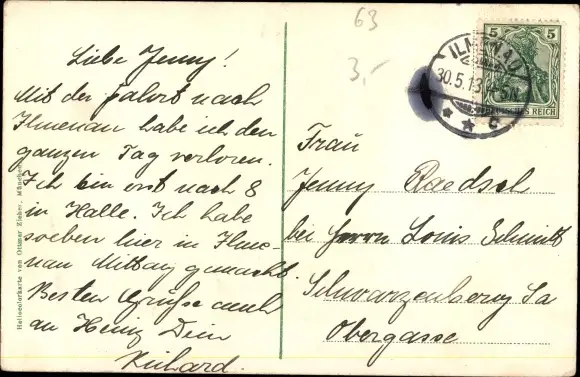 63
3,-
Liebe Jenny!
Mit der Fahrt nach
Ilmenau habe ich den
ganzen Tag verloren.
Ich bin erst nach 8
in Halle. Ich habe
soeben hier in Ilme-
nau Mittag gemacht.
Besten Grüße auch
an Heinz Dein
Richard.
Heliocolorkarte von Ottmar Zieher, München
5 5
ILMENAU
30.5.13
DEUTSCHES REICH
* * c
Frau
Jenny
bei Herrn Louis Schmidt
Schwarzenberg Sa
Obergasse